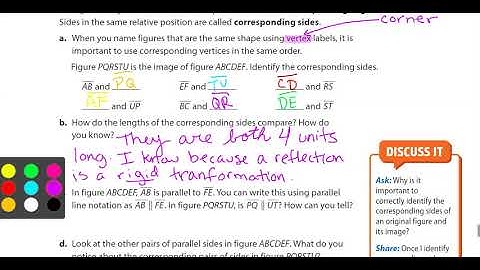 Sides in the same relative position are called corresponding sides.
corner
a. When you name figures that are the same shape using vertex labels, it is
important to use corresponding vertices in the same order.
Figure PQRSTU is the image of figure ABCDEF. Identify the corresponding sides.
AB and PQ EF and TU CD and RS
AF and UP BC and QR DE and ST
b. How do the lengths of the corresponding sides compare? How do
you know? They are both 4 units
long. I know because a reflection
is a rigid tranformation.
In figure ABCDEF, AB is parallel to FE. You can write this using parallel
line notation as AB ∥ FE. In figure PQRSTU, is PQ ∥ UT? How can you tell?
d. Look at the other pairs of parallel sides in figure ABCDEF. What do you
notice about the corresponding pairs of sides in figure PQRSTU?
DISCUSS IT
Ask: Why is it
important to
correctly identify the
corresponding sides of
an original figure and
its image?
Share: Once I identify